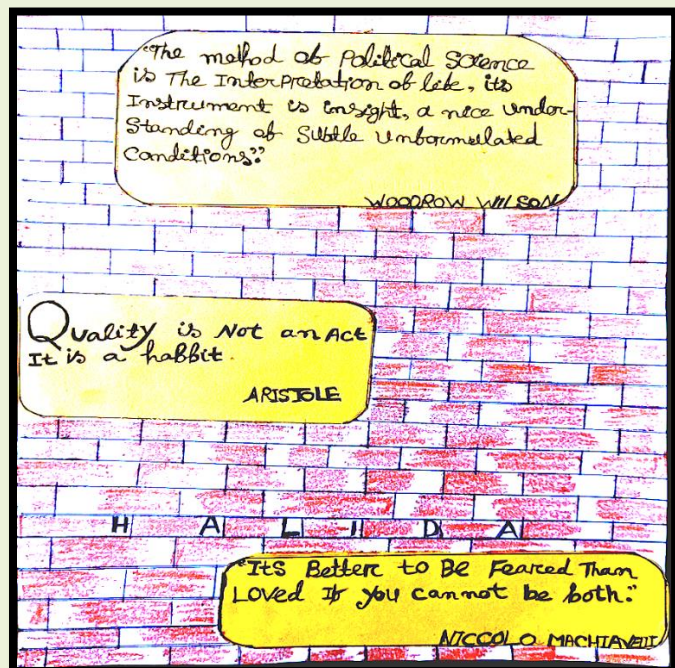 "The method of Political Science
is The Interpretation of life, its
Instrument is insight, a nice under-
Standing of Subtle Unformulated
Conditions".
WOODROW WILSON
Quality is Not an Act
It is a habbit.
ARISTOLE
H A L I D A
"ITS Better to BE Feared Than
LOVED If you cannot be both."
NICCOLO MACHIAVELLI